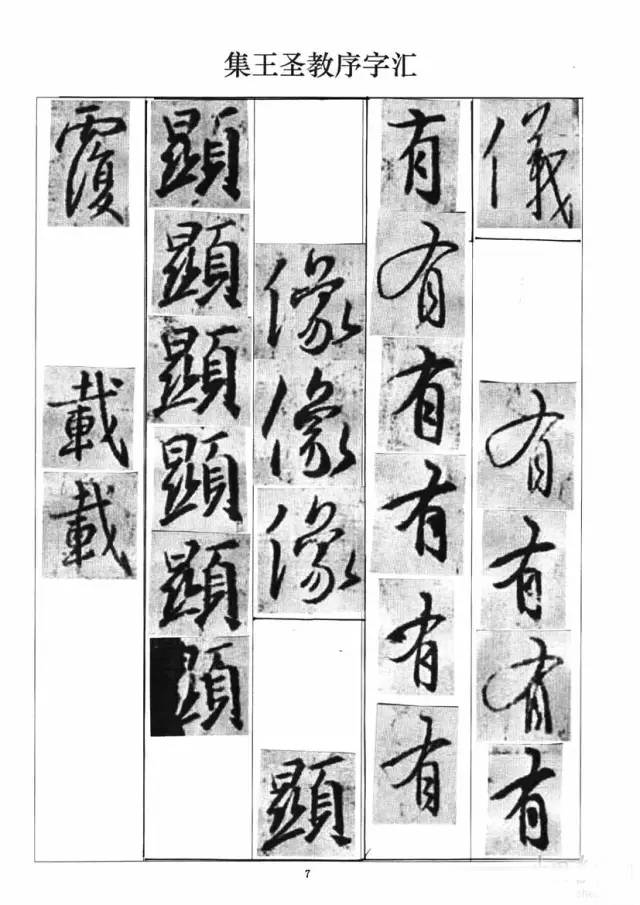 集王圣教序字汇
儀
有
有
有
有
有
有
有
有
有
有
像
像
像
顯
顯
顯
顯
顯
顯
顯
覆
載
載
7